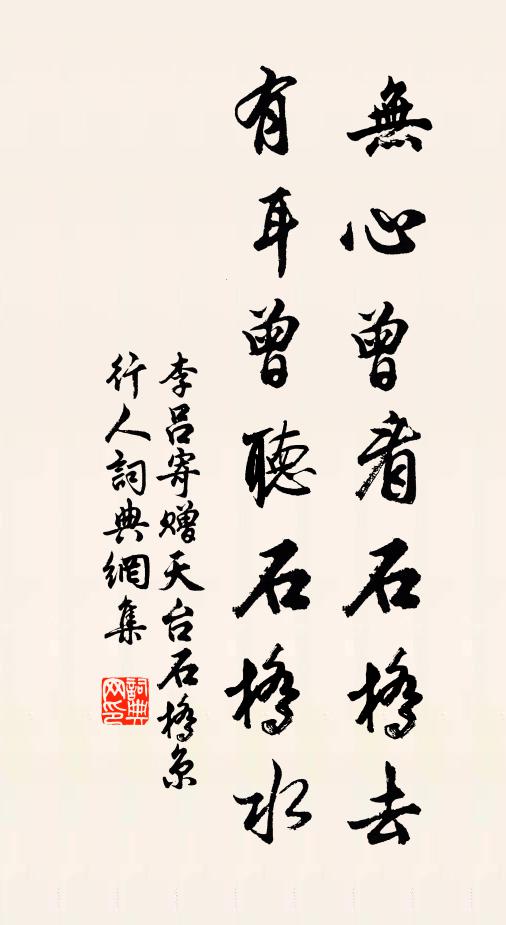 無心曾看石橋去
有耳曾聽石橋水
李呂寄贈天台石橋京
行人詞典網集
詞典网印